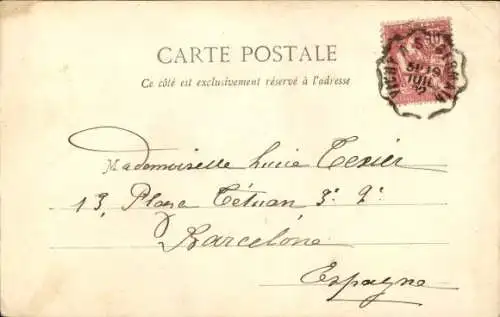 CARTE POSTALE
Ce côté est exclusivement réservé à l'adresse
Mademoiselle Lucie Texier
13, Plaza Tétuan 3º 2ª
Barcelone
Espagne